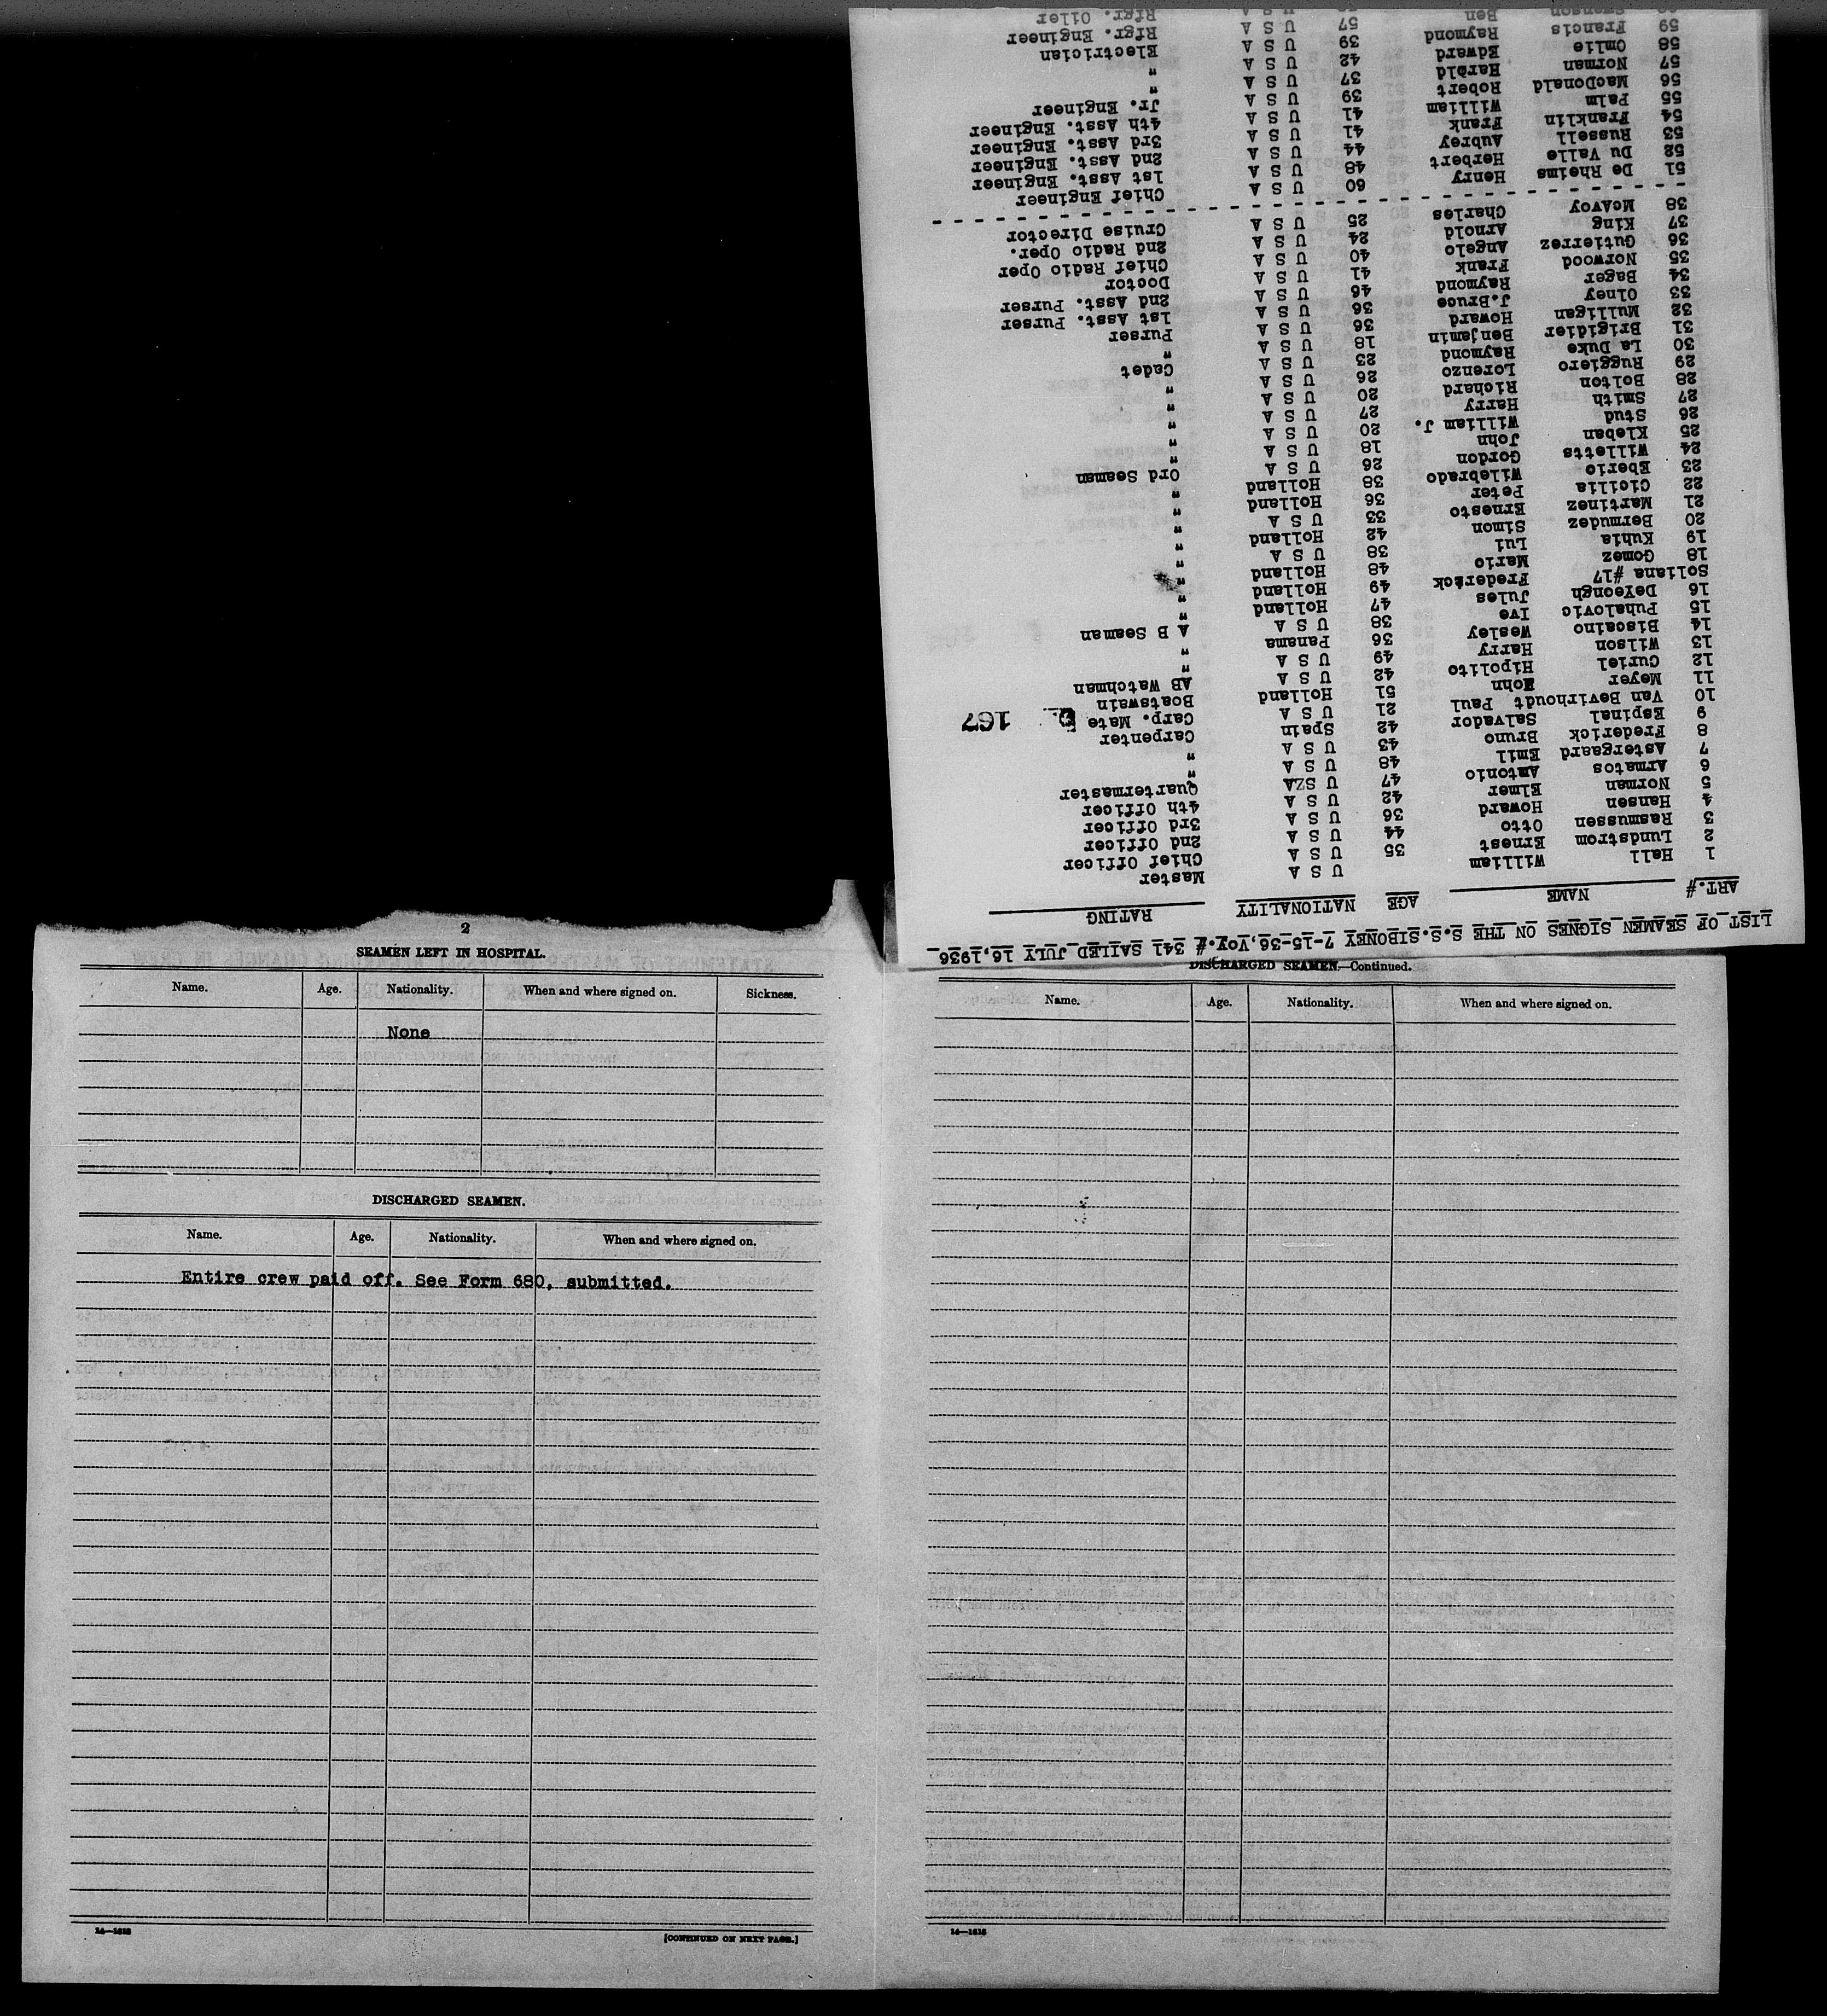 LIST OF SEAMEN SIGNES ON THE S.S.SIBONEY 7-15-36,Voy.# 341 SAILED JULY 16,1936
ART.# NAME AGE NATIONALITY RATING
1 Hall William U S A Master
2 Lundstrom Ernest 35 U S A Chief Officer
3 Rasmussen Otto 44 U S A 2nd Officer
4 Hansen Howard 36 U S A 3rd Officer
5 Norman Elmer 42 U S A 4th Officer
6 Armatos Antonio 47 U SZA Quartermaster
7 Astergaard Emil 48 U S A "
8 Frederick Bruno 43 U S A "
9 Espinal Salvador 42 Spain Carpenter
10 Van Bevirhoudt Paul 21 U S A Carp. Mate 167
11 Meyer John 51 Holland Boatswain
12 Curiel Hipolito 42 U S A AB Watchman
13 Wilson Harry 49 U S A "
14 Biscaino Wesley 36 Panama "
15 Puhalovic Ive 38 U S A A B Seaman
16 DeYeongh Jules 47 Holland "
Soliana #17 Frederick 49 Holland "
18 Gomez Mario 48 Holland "
19 Kuhia Lui 38 U S A "
20 Bermudez Simon 42 Holland "
21 Martinez Ernesto 33 U S A "
22 Cicilia Peter 36 Holland "
23 Eberio Wilebrado 38 Holland "
24 Willetts Gordon 26 U S A Ord Seaman
25 Kleban John 18 U S A "
26 Stud William J. 20 U S A "
27 Smith Harry 27 U S A "
28 Bolton Richard 20 U S A "
29 Ruggiero Lorenzo 26 U S A "
30 La Duke Raymond 23 U S A Cadet
31 Brigidier Benjamin 18 U S A "
32 Mulligan Howard 36 U S A Purser
33 Olney J.Bruce 36 U S A 1st Asst. Purser
34 Bager Raymond 46 U S A 2nd Asst. Purser
35 Norwood Frank 41 U S A Doctor
36 Gutierrez Angelo 40 U S A Chief Radio Oper
37 King Arnold 24 U S A 2nd Radio Oper.
38 McAvoy Charles 25 U S A Cruise Director
51 De Rheims Henry 60 U S A Chief Engineer
52 Du Valle Herbert 48 U S A 1st Asst. Engineer
53 Russell Aubrey 44 U S A 2nd Asst. Engineer
54 Franklin Frank 41 U S A 3rd Asst. Engineer
55 Palm William 41 U S A 4th Asst. Engineer
56 MacDonald Robert 39 U S A Jr. Engineer
57 Norman Harold 37 U S A "
58 Omlie Edward 42 U S A "
59 Francis Raymond 39 U S A Electrician
Swenson Ben 57 U S A Rfgr. Engineer
Rfgr. Oiler
2
SEAMEN LEFT IN HOSPITAL.
Name. Age. Nationality. When and where signed on. Sickness.
None
DISCHARGED SEAMEN.
Name. Age. Nationality. When and where signed on.
Entire crew paid off. See Form 680, submitted.
14—1618
[CONTINUED ON NEXT PAGE.]
DISCHARGED SEAMEN—Continued.
Name. Age. Nationality. When and where signed on.
14—1618